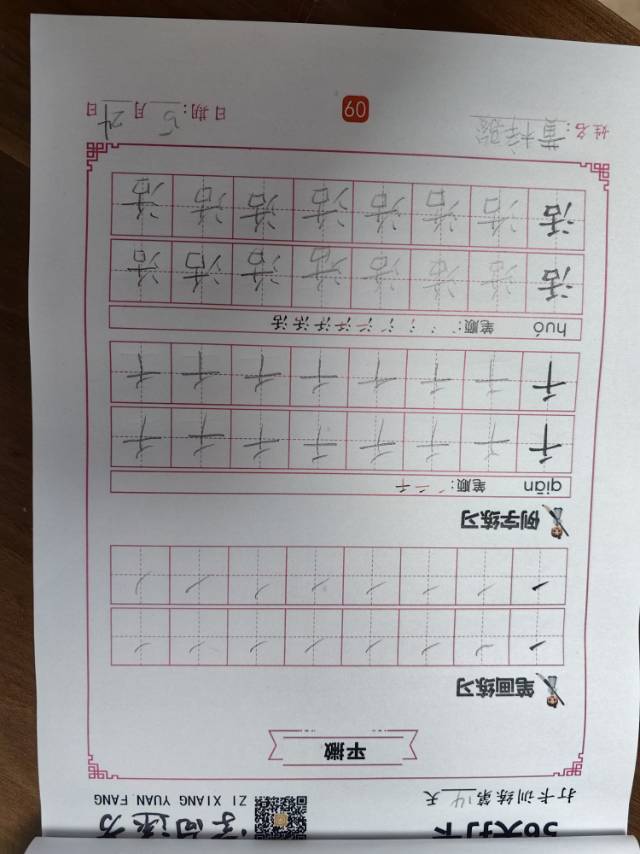 56天打卡
字向远方
打卡训练第14天
ZI XIANG YUAN FANG
平撇
笔画练习
例字练习
qiān 笔顺: 千
千 千 千 千 千 千 千 千
千 千 千 千 千 千 千 千
huó 笔顺: 活
活 活 活 活 活 活 活 活
活 活 活 活 活 活 活 活
姓名: 黄梓
60
日期: 5月日